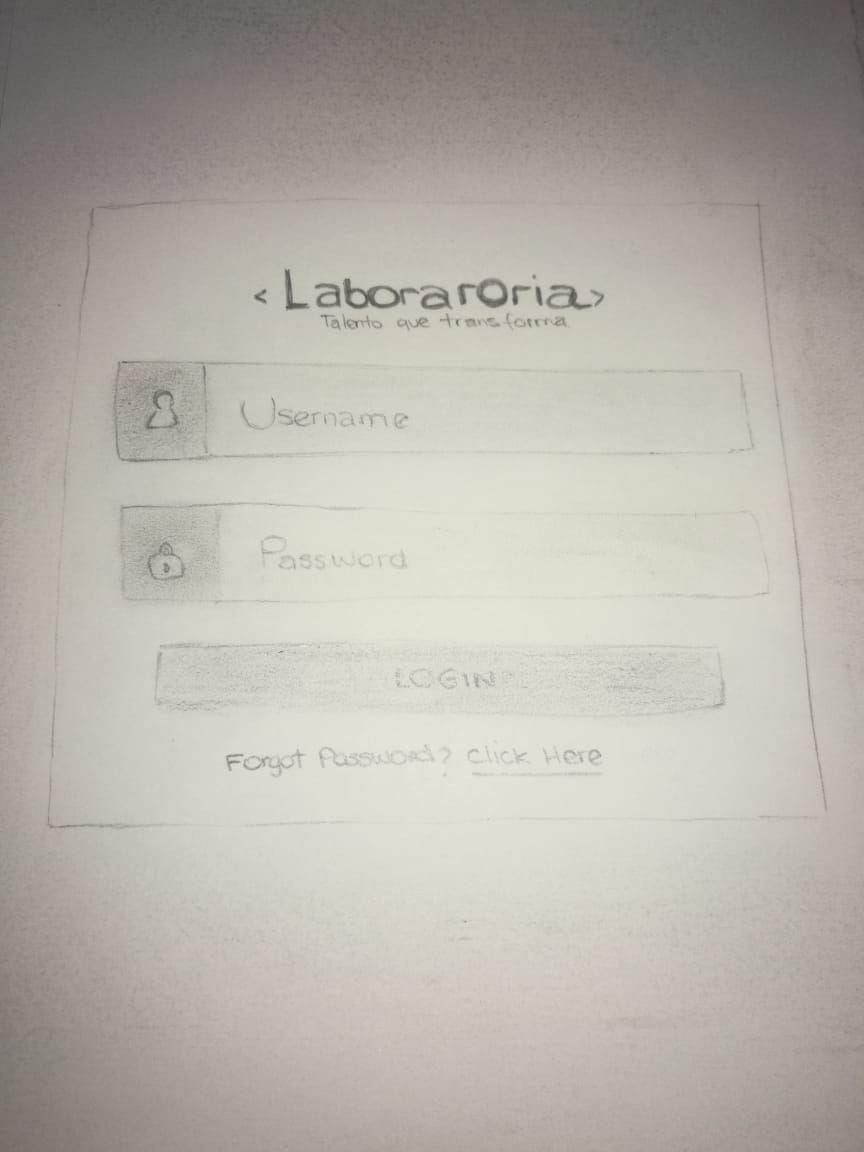 <Laboraroria>
Talento que transforma
Username
Password
LOGIN
Forgot Password? Click Here